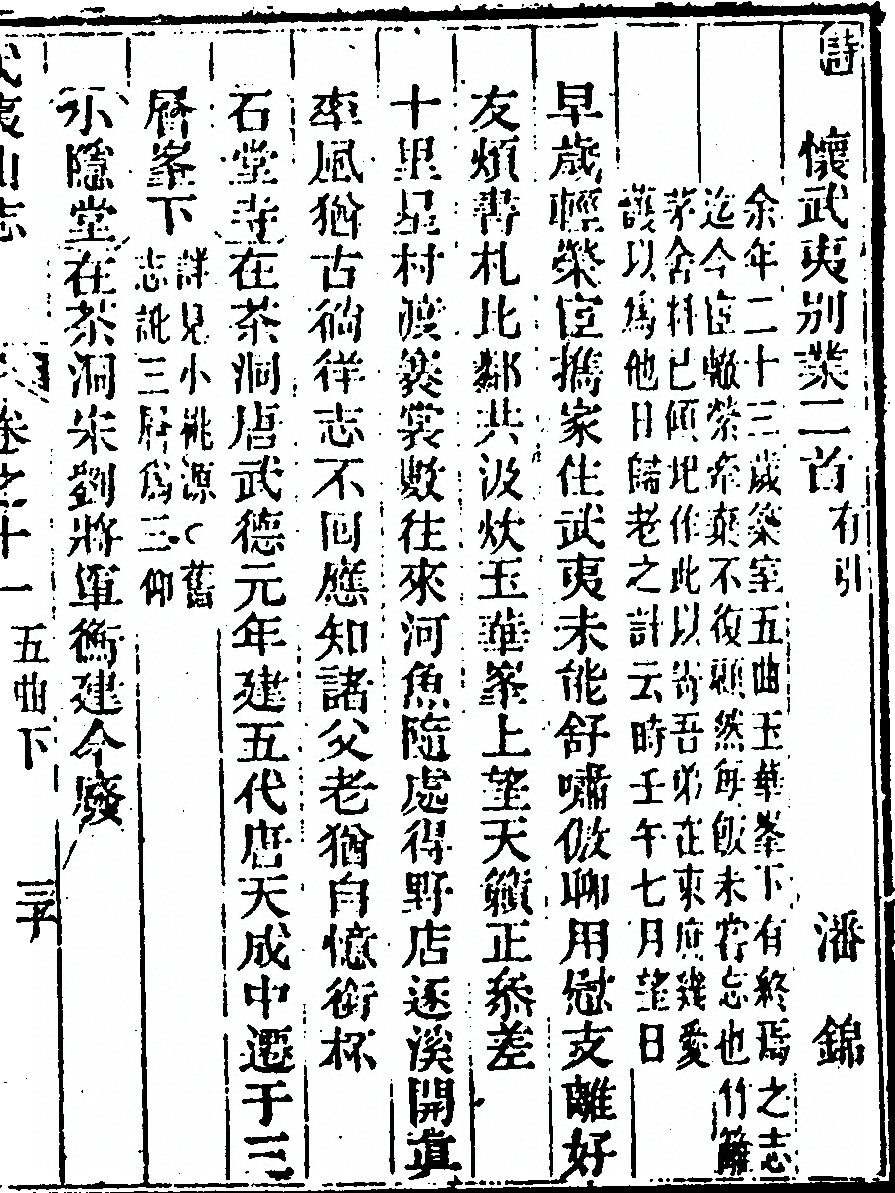 詩 懷武夷別業二首有引 潘錦
余年二十三歲築室五曲玉華峯下有終焉之志
迄今宦轍縈牽奐不復顧然每飯未嘗忘也竹籬
茅舍料已傾圯作此以寄吾弟在東庶幾愛
護以爲他日歸老之計云時壬午七月望日
早歲輕榮宦擕家住武夷未能舒嘯傲聊用慰支離好
友煩書札比鄰共汲炊玉華峯上望天籟正叅差
十里星村渡褰裳數往來河魚隨處得野店逐溪開眞
率風猶古徜徉志不回應知諸父老猶自憶銜杯
石堂寺在茶洞唐武德元年建五代唐天成中遷于三
層峯下詳見小桃源〇舊
志訛三層爲三仰
小隱堂在茶洞宋劉將軍衡建今廢
武夷山志 卷之十一 五曲下 三